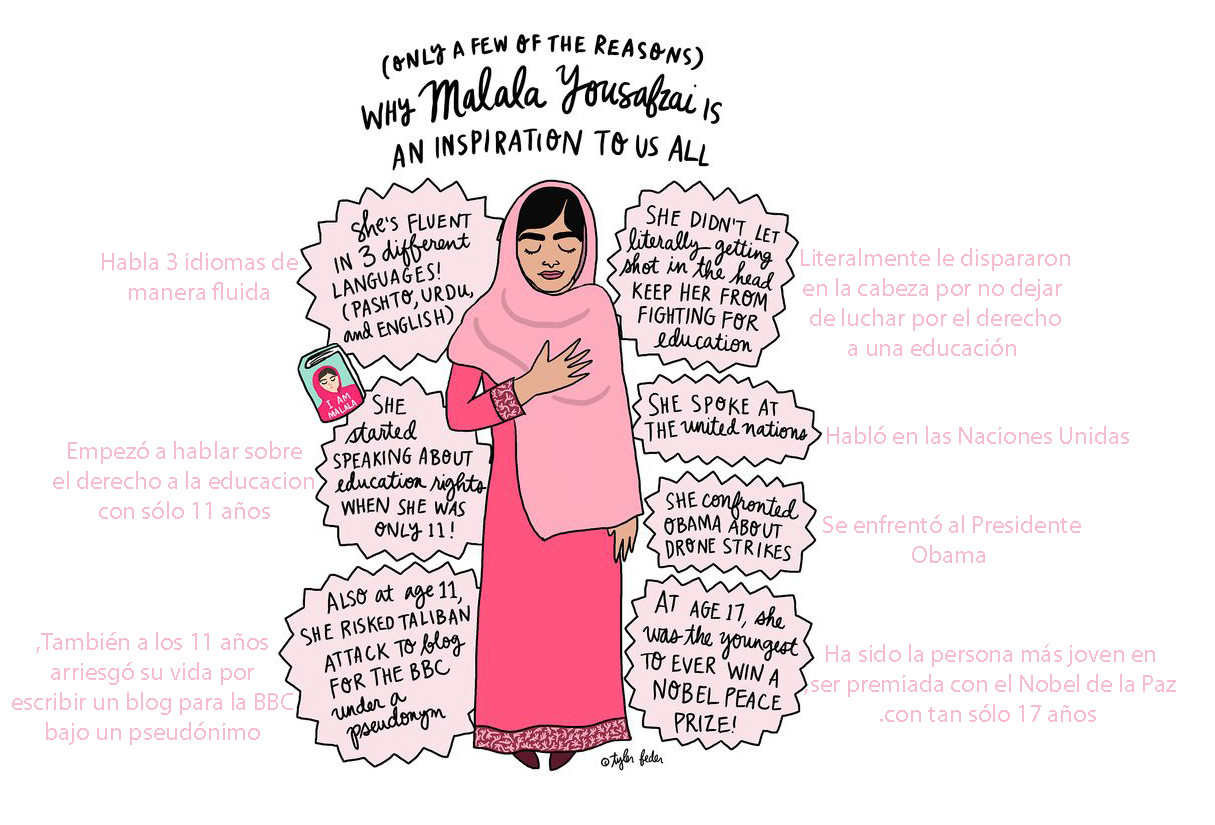 (ONLY A FEW OF THE REASONS)
WHY Malala Yousafzai IS
AN INSPIRATION TO US ALL
She's FLUENT
IN 3 different
LANGUAGES!
(PASHTO, URDU,
and ENGLISH)
Habla 3 idiomas de
manera fluida
I AM
MALALA
SHE
started
SPEAKING ABOUT
education rights
WHEN SHE WAS
ONLY 11!
Empezó a hablar sobre
el derecho a la educacion
con sólo 11 años
ALSO at age 11,
SHE RISKED TALIBAN
ATTACK TO blog
FOR THE BBC
under a
pseudonym
,También a los 11 años
arriesgó su vida por
escribir un blog para la BBC
bajo un pseudónimo
SHE DIDN'T LET
literally getting
shot in the head
KEEP HER FROM
FIGHTING FOR
education
Literalmente le dispararon
en la cabeza por no dejar
de luchar por el derecho
a una educación
SHE SPOKE AT
THE united nations
Habló en las Naciones Unidas
SHE confronted
OBAMA ABOUT
DRONE STRIKES
Se enfrentó al Presidente
Obama
AT AGE 17, she
was the youngest
TO EVER WIN A
NOBEL PEACE
PRIZE!
Ha sido la persona más joven en
,ser premiada con el Nobel de la Paz
.con tan sólo 17 años
©tyler feder